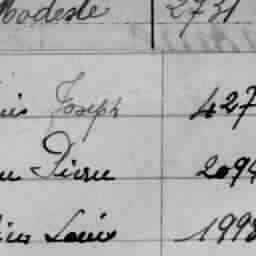 Modeste 2731
Joseph 427
Pierre 2094
Louis 1998